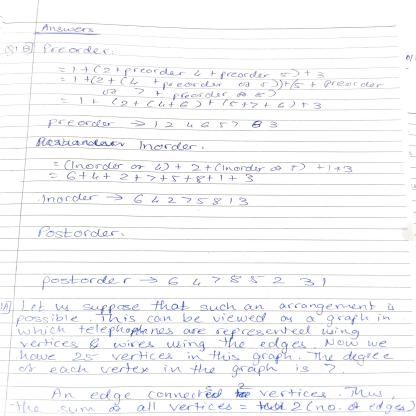 Answers
Q1 B] Preorder.
= 1 + (2 + preorder 4 + preorder 5) + 3
= 1 + (2 + (4 + preorder of 6)) + (5 + preorder
of 7 + preorder of 8)
= 1 + (2 + (4 + 6) + (5 + 7 + 6) + 3
preorder → 1 2 4 6 5 7 8 3
Inorder.
= (Inorder of 4) + 2 + (Inorder of 5) + 1 + 3
= 6 + 4 + 2 + 7 + 5 + 8 + 1 + 3
Inorder → 6 4 2 7 5 8 1 3
Postorder.
postorder → 6 4 7 8 5 2 3 1
A] Let us suppose that such an arrangement is
possible. This can be viewed as a graph in
which telephones are represented using
vertices & wires using the edges. Now we
have 25 vertices in this graph. The degree
of each vertex in the graph is 7.
An edge connects 2 vertices. Thus,
the sum of all vertices = 2 (no. of edges)